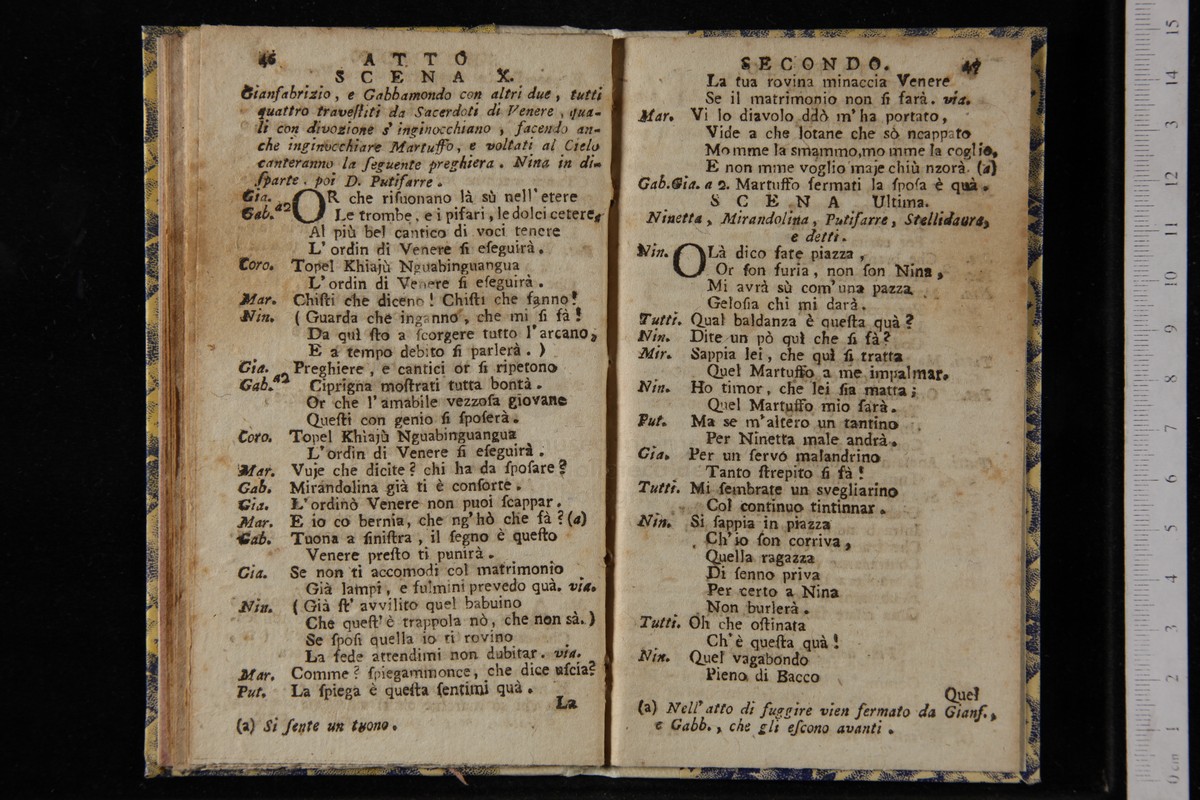 46
ATTO
SCENA X.
Gianfabrizio, e Gabbamondo con altri due, tutti
quattro traveſtiti da Sacerdoti di Venere, qua-
li con divozione s' inginocchiano, facendo an-
che inginocchiare Martuffo, e voltati al Cielo
canteranno la ſeguente preghiera. Nina in di-
ſparte. poi D. Putifarre.
Gia. Gab. a2 OR che riſuonano là sù nell' etere
Le trombe, e i pifari, le dolci cetere,
Al più bel cantico di voci tenere
L' ordin di Venere ſi eſeguirà.
Coro. Topel Khiajù Nguabinguangua
L' ordin di Venere ſi eſeguirà.
Mar. Chiſti che diceno! Chiſti che fanno!
Nin. (Guarda che inganno, che mi ſi fà!
Da quì ſto a ſcorgere tutto l' arcano,
E a tempo debito ſi parlerà.)
Gia. Gab. a2 Preghiere, e cantici or ſi ripetono
Ciprigna moſtrati tutta bontà.
Or che l' amabile vezzoſa giovane
Queſti con genio ſi ſpoſerà.
Coro. Topel Khiajù Nguabinguangua
L' ordin di Venere ſi eſeguirà.
Mar. Vuje che dicite? chi ha da ſpoſare?
Gab. Mirandolina già ti è conſorte.
Gia. L' ordinò Venere non puoi ſcappar.
Mar. E io co bernia, che ng' hò che fà? (a)
Gab. Tuona a ſiniſtra, il ſegno è queſto
Venere preſto ti punirà.
Gia. Se non ti accomodi col matrimonio
Già lampi, e fulmini prevedo quà. via.
Nin. (Già ſt' avvilito quel babuino
Che queſt' è trappola nò, che non sà.)
Se ſpoſi quella io ti rovino
La fede attendimi non dubitar. via.
Mar. Comme? ſpiegammonce, che dice uſcia?
Put. La ſpiega è queſta ſentimi quà.
La
(a) Si ſente un tuono.
SECONDO. 47
La tua rovina minaccia Venere
Se il matrimonio non ſi farà. via.
Mar. Vi lo diavolo ddò m' ha portato,
Vide a che lotane che sò ncappato
Mo mme la smammo, mo mme la coglio,
E non mme voglio maje chiù nzorà. (a)
Gab. Gia. a 2. Martuffo fermati la ſpoſa è quà.
SCENA Ultima.
Ninetta, Mirandolina, Putifarre, Stellidaura,
e detti.
Nin. OLà dico fate piazza,
Or ſon furia, non ſon Nina,
Mi avrà sù com' una pazza
Geloſia chi mi darà.
Tutti. Qual baldanza è queſta quà?
Nin. Dite un pò quì che ſi fà?
Mir. Sappia lei, che quì ſi tratta
Quel Martuffo a me impalmar.
Nin. Ho timor, che lei ſia matta;
Quel Martuffo mio ſarà.
Put. Ma se m' altero un tantino
Per Ninetta male andrà.
Gia. Per un ſervo malandrino
Tanto ſtrepito ſi fà!
Tutti. Mi ſembrate un svegliarino
Col continuo tintinnar.
Nin. Si ſappia in piazza
Ch' io ſon corriva,
Quella ragazza
Di ſenno priva
Per certo a Nina
Non burlerà.
Tutti. Oh che oſtinata
Ch' è queſta quà!
Nin. Quel vagabondo
Pieno di Bacco
Quel
(a) Nell' atto di fuggire vien fermato da Gianf.,
e Gabb., che gli eſcono avanti.
15
14
13
12
11
10
9
8
7
6
5
4
3
2
1
0 cm